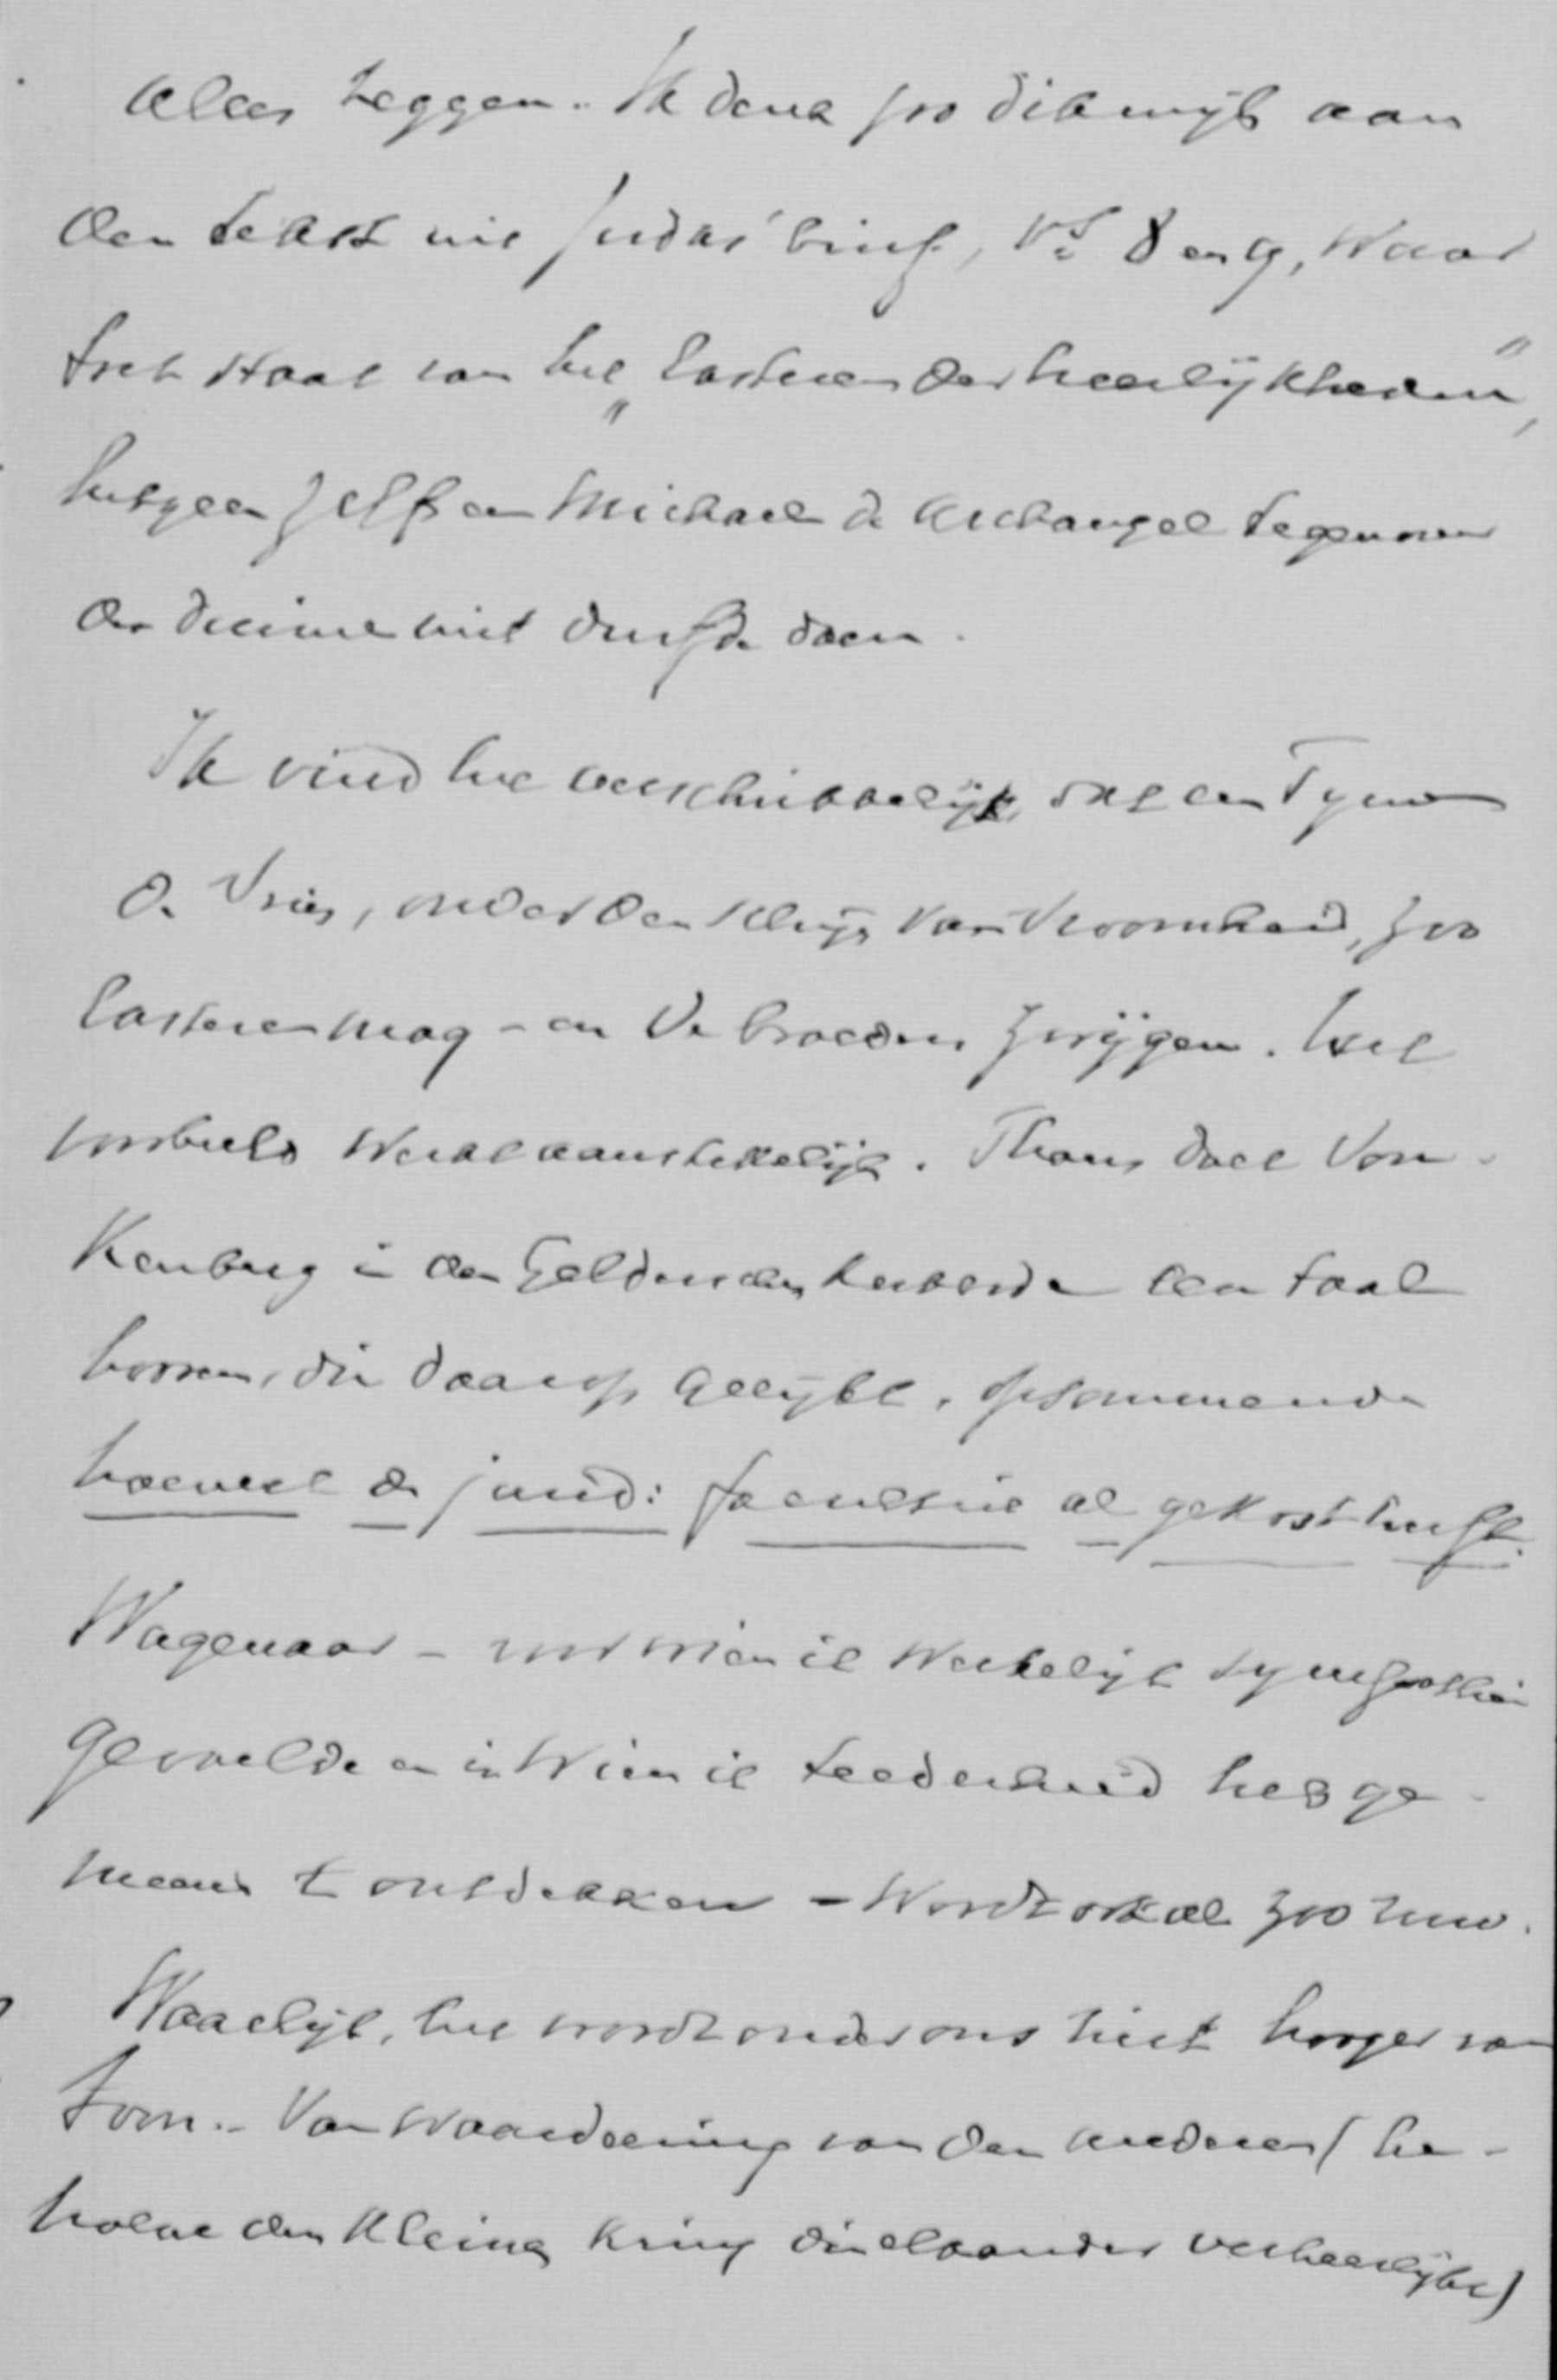 alles zeggen. Ik denk zoo dikwijls aan
den tekst uit Judas' brief, vs 8 en 9, waar
toch staat van het „lasteren der heerlijkheden",
hetgeen zelfs een Michael de Archangel tegenover
den duivel niet durfde doen.
Ik vind het verschrikkelijk, dat een Tymen
de Vries, onder den schijn van vroomheid, zoo
lasteren mag - en de broeders zwijgen. Het
voorbeeld werkt aanstekelijk. Thans doet Von-
kenberg in den Gelderschen Kerkbode een taal
hooren, die daarop gelijkt, opsommende
hoeveel de jurid: faculteit al gekost heeft.
Wagenaar - voor wien ik werkelijk sympathie
gevoelde en in wien ik teederheid heb ge-
meend te ontdekken - wordt ook al zoo ruw.
Waarlijk, het wordt onder ons niet hooger van
toon. - Van waardeering van den anderen (be-
halve den kleinen kring die elkander verheerlijkt)